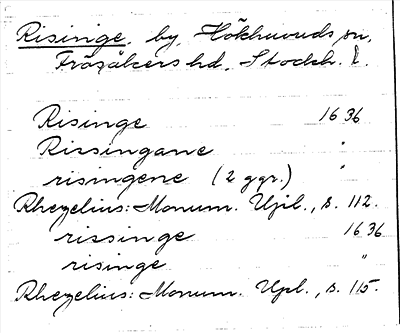 Risinge, by, Hökhuvuds sn,
Frösåkers hd, Stockh. l.
Risinge 1636
Rissingane "
risingene (2 ggr.) "
Rhezelius: Monum. Upl., s. 112.
rissinge 1636
risinge "
Rhezelius: Monum. Upl., s. 115.